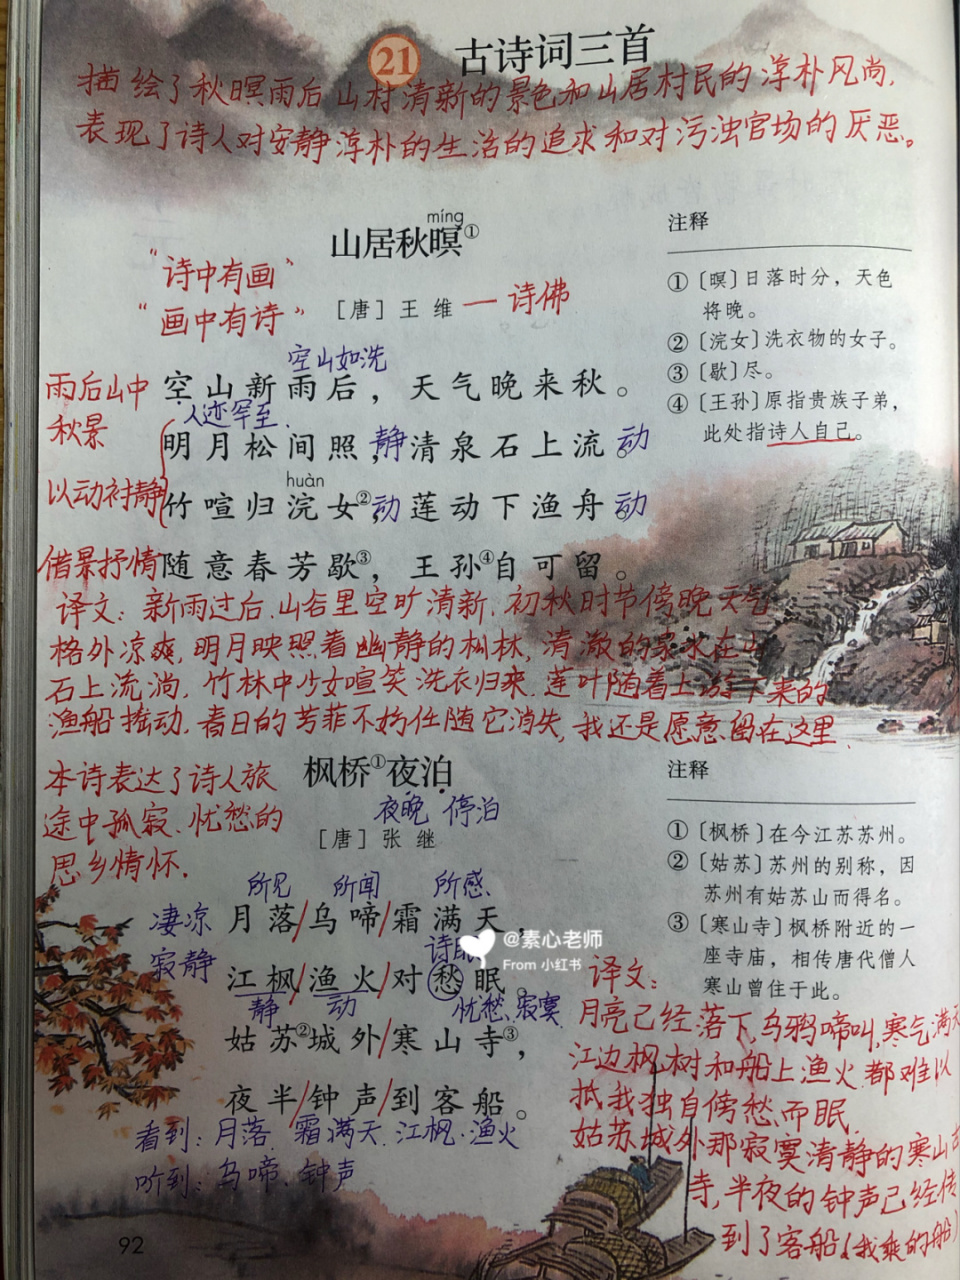 21 古诗词三首
描绘了秋暝雨后山村清新的景色和山居村民的淳朴风尚,
表现了诗人对安静淳朴的生活的追求和对污浊官场的厌恶。
míng
山居秋暝①
“诗中有画”
“画中有诗”
[唐] 王 维 — 诗佛
空山如洗
雨后山中
秋景
空山新雨后，天气晚来秋。
人迹罕至.
明月松间照，静 清泉石上流。动
huàn
以动衬静
竹喧归浣女②，动 莲动下渔舟。动
借景抒情
随意春芳歇③，王孙④自可留。
译文: 新雨过后.山谷里空旷清新.初秋时节傍晚天气
格外凉爽,明月映照着幽静的松林,清澈的泉水在山
石上流淌,竹林中少女喧笑洗衣归来.莲叶随着上游下来的
渔船摇动.春日的芳菲不妨任随它消失,我还是愿意留在这里.
注释
①〔暝〕日落时分，天色
将晚。
②〔浣女〕洗衣物的女子。
③〔歇〕尽。
④〔王孙〕原指贵族子弟，
此处指诗人自己。
本诗表达了诗人旅
途中孤寂、忧愁的
思乡情怀.
枫桥①夜泊
夜晚 停泊
[唐] 张 继
所见 所闻 所感
凄凉
寂静
月落/乌啼/霜满天，
诗眼
江枫/渔火/对愁眠。
静 动 忧愁、寂寞
姑苏②城外/寒山寺③，
夜半/钟声/到客船。
看到: 月落、霜满天、江枫、渔火
听到: 乌啼、钟声
注释
①〔枫桥〕在今江苏苏州。
②〔姑苏〕苏州的别称，因
苏州有姑苏山而得名。
③〔寒山寺〕枫桥附近的一
座寺庙，相传唐代僧人
寒山曾住于此。
译文:
月亮已经落下,乌鸦啼叫,寒气满天
江边枫树和船上渔火.都难以
抵我独自傍愁而眠.
姑苏城外那寂寞清静的寒山古
寺,半夜的钟声已经传
到了客船(我乘的船)
@素心老师
From 小红书
92